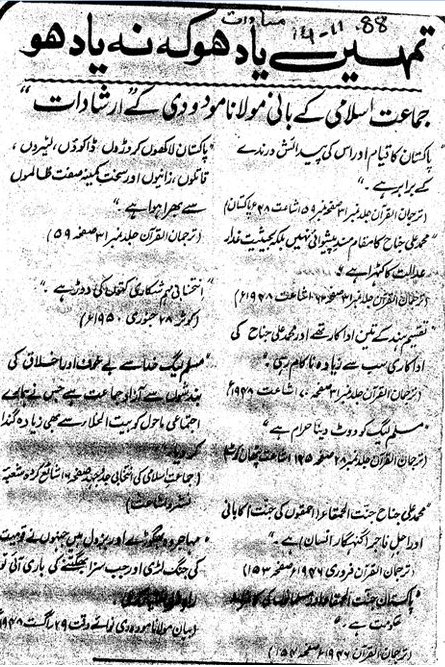 مساوات 88-11-14
تمہیں یاد ہو کہ نہ یاد ہو
جماعت اسلامی کے بانی مولانا مودودی کے "ارشادات"
"پاکستان کا قیام اور اس کی پیدائش درندے
کے برابر ہے۔"
(ترجمان القرآن جلد نمبر ۳۱ صفحہ نمبر ۵۹ اشاعت ۴۸ء پاکستان)
"محمد علی جناح کا مقام مسند پیشوائی نہیں بلکہ بحیثیت غدار
عدالت کا کٹہرا ہے۔"
(ترجمان القرآن جلد نمبر ۳۱ صفحہ اشاعت ۱۹۴۸ء)
تقسیم ہند کے تین اداکار تھے اور محمد علی جناح کی
اداکاری سب سے زیادہ ناکام رہی۔"
(ترجمان القرآن جلد نمبر ۳۱ صفحہ ۷۰ اشاعت ۱۹۴۸ء)
"مسلم لیگ کو ووٹ دینا حرام ہے"
(ترجمان القرآن جلد نمبر ۲۸ صفحہ ۱۴۵ اشاعت پٹھان کوٹ)
"محمد علی جناح جنت الحمقاء (احمقوں کی جنت) کا بانی
اور اجل فاجر (گنہگار انسان) ہے۔"
(ترجمان القرآن فروری ۱۹۴۶ء صفحہ ۱۵۳)
"پاکستان جنت الحمقاء اور مسلمانوں کی کافرانہ
حکومت ہے۔"
(ترجمان القرآن ۱۹۴۶ء صفحہ ۱۵۴)
"پاکستان لاکھوں کروڑوں، ڈاکوؤں، لٹیروں،
قاتلوں، زانیوں اور سخت کمینہ صفت ظالموں
سے بھرا ہوا ہے۔"
(ترجمان القرآن جلد نمبر ۳۱ صفحہ ۵۹)
"انتخابی مہم شکاری کتوں کی دوڑ ہے۔"
(کوثر ۲۸ جنوری ۱۹۵۰ء)
"مسلم لیگ خدا سے بے خوف اور اخلاق کی
بندشوں سے آزاد جماعت ہے جس نے ہمارے
اجتماعی ماحول کو بیت الخلاء سے بھی زیادہ گندا
کر دیا۔"
(جماعت اسلامی کی انتخابی جدوجہد صفحہ ۶ شائع کردہ شعبہ
نشر و اشاعت)
"مہاجر وہ بھگوڑے اور بزدل ہیں جنہوں نے قومیت
کی جنگ لڑی اور جب سزا بھگتنے کی باری آئی تو
(بیان مولانا مودودی نوائے وقت ۲۹ اگست ۱۹۴۸ء)